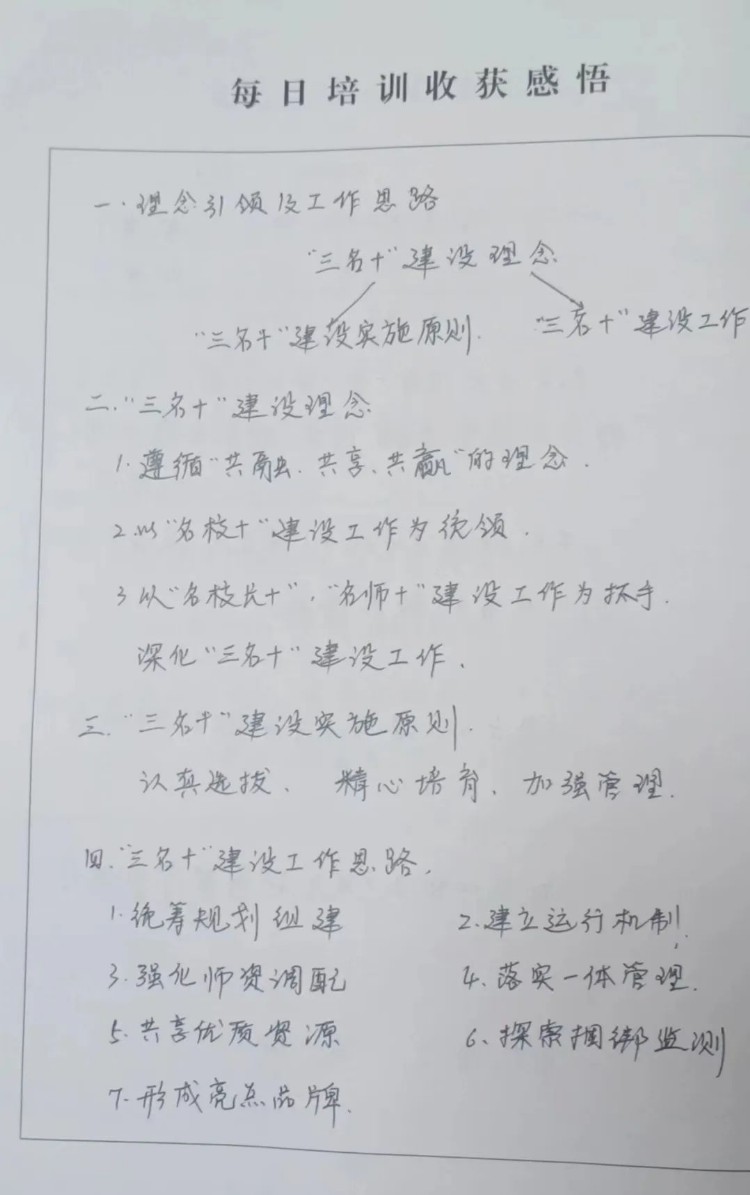 每日培训收获感悟
一.理念引领及工作思路
"三名+"建设理念
"三名+"建设实施原则. "三名+"建设工作
二."三名+"建设理念
1.遵循"共融、共享、共赢"的理念.
2.以"名校+"建设工作为统领.
3.以"名校长+"、"名师+"建设工作为抓手.
深化"三名+"建设工作.
三."三名+"建设实施原则.
认真选拔、精心培育、加强管理.
四."三名+"建设工作思路.
1.统筹规划组建 2.建立运行机制.
3.强化师资调配 4.落实一体管理.
5.共享优质资源 6、探索捆绑监测
7.形成亮点品牌.